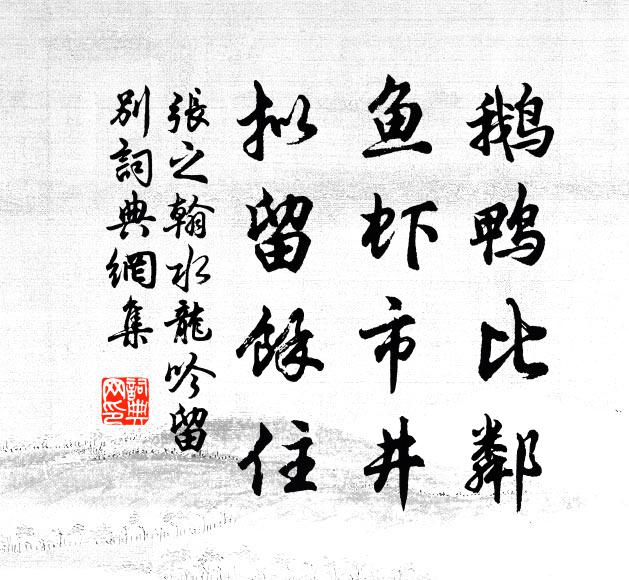 鹅鸭比鄰
鱼虾市井
拟留餘住
張之翰水龍吟留
別詞典網集
詞典网印